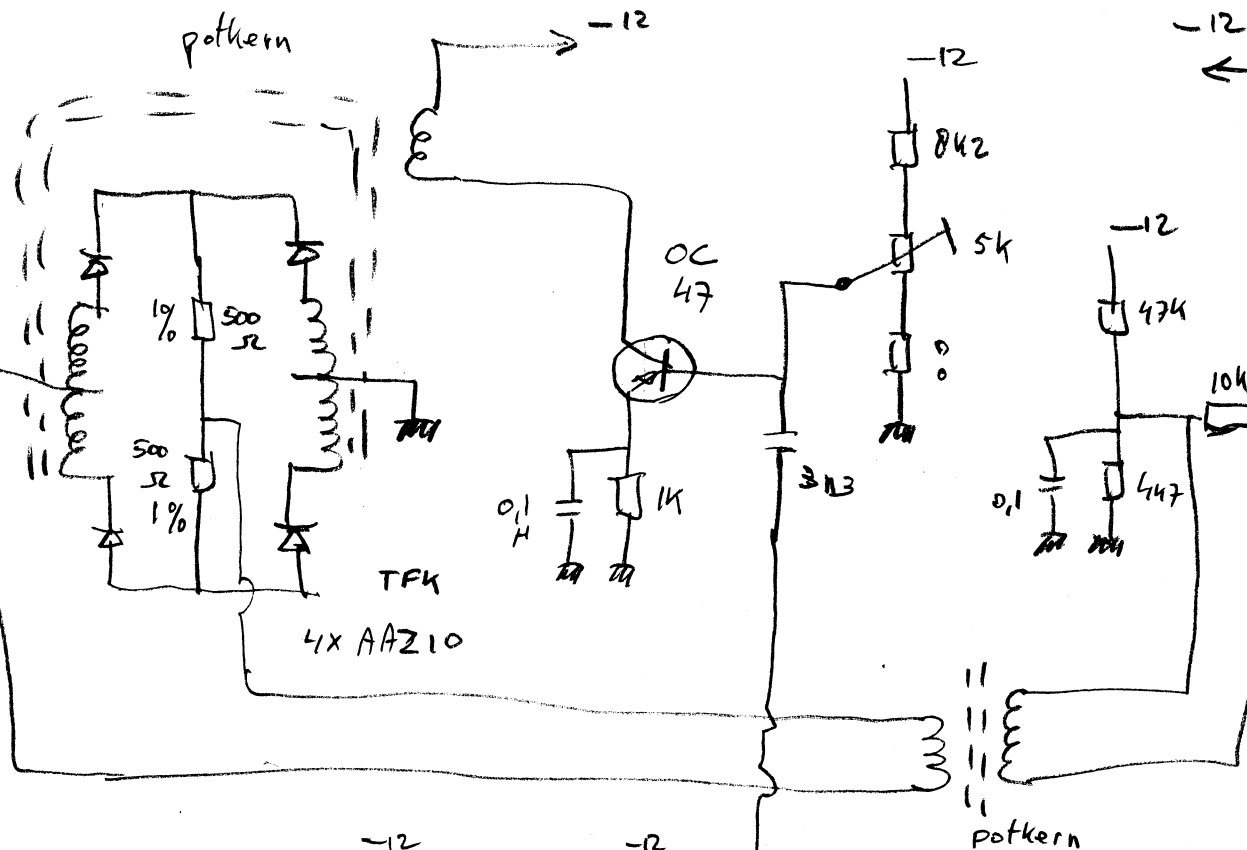 potkern
-12
-12
-12
8k2
5k
OC
47
-12
47K
10K
1%
500
Ω
500
Ω
1%
0,1
μ
1K
3n3
0,1
4k7
TFK
4x AAZ10
-12
-12
potkern